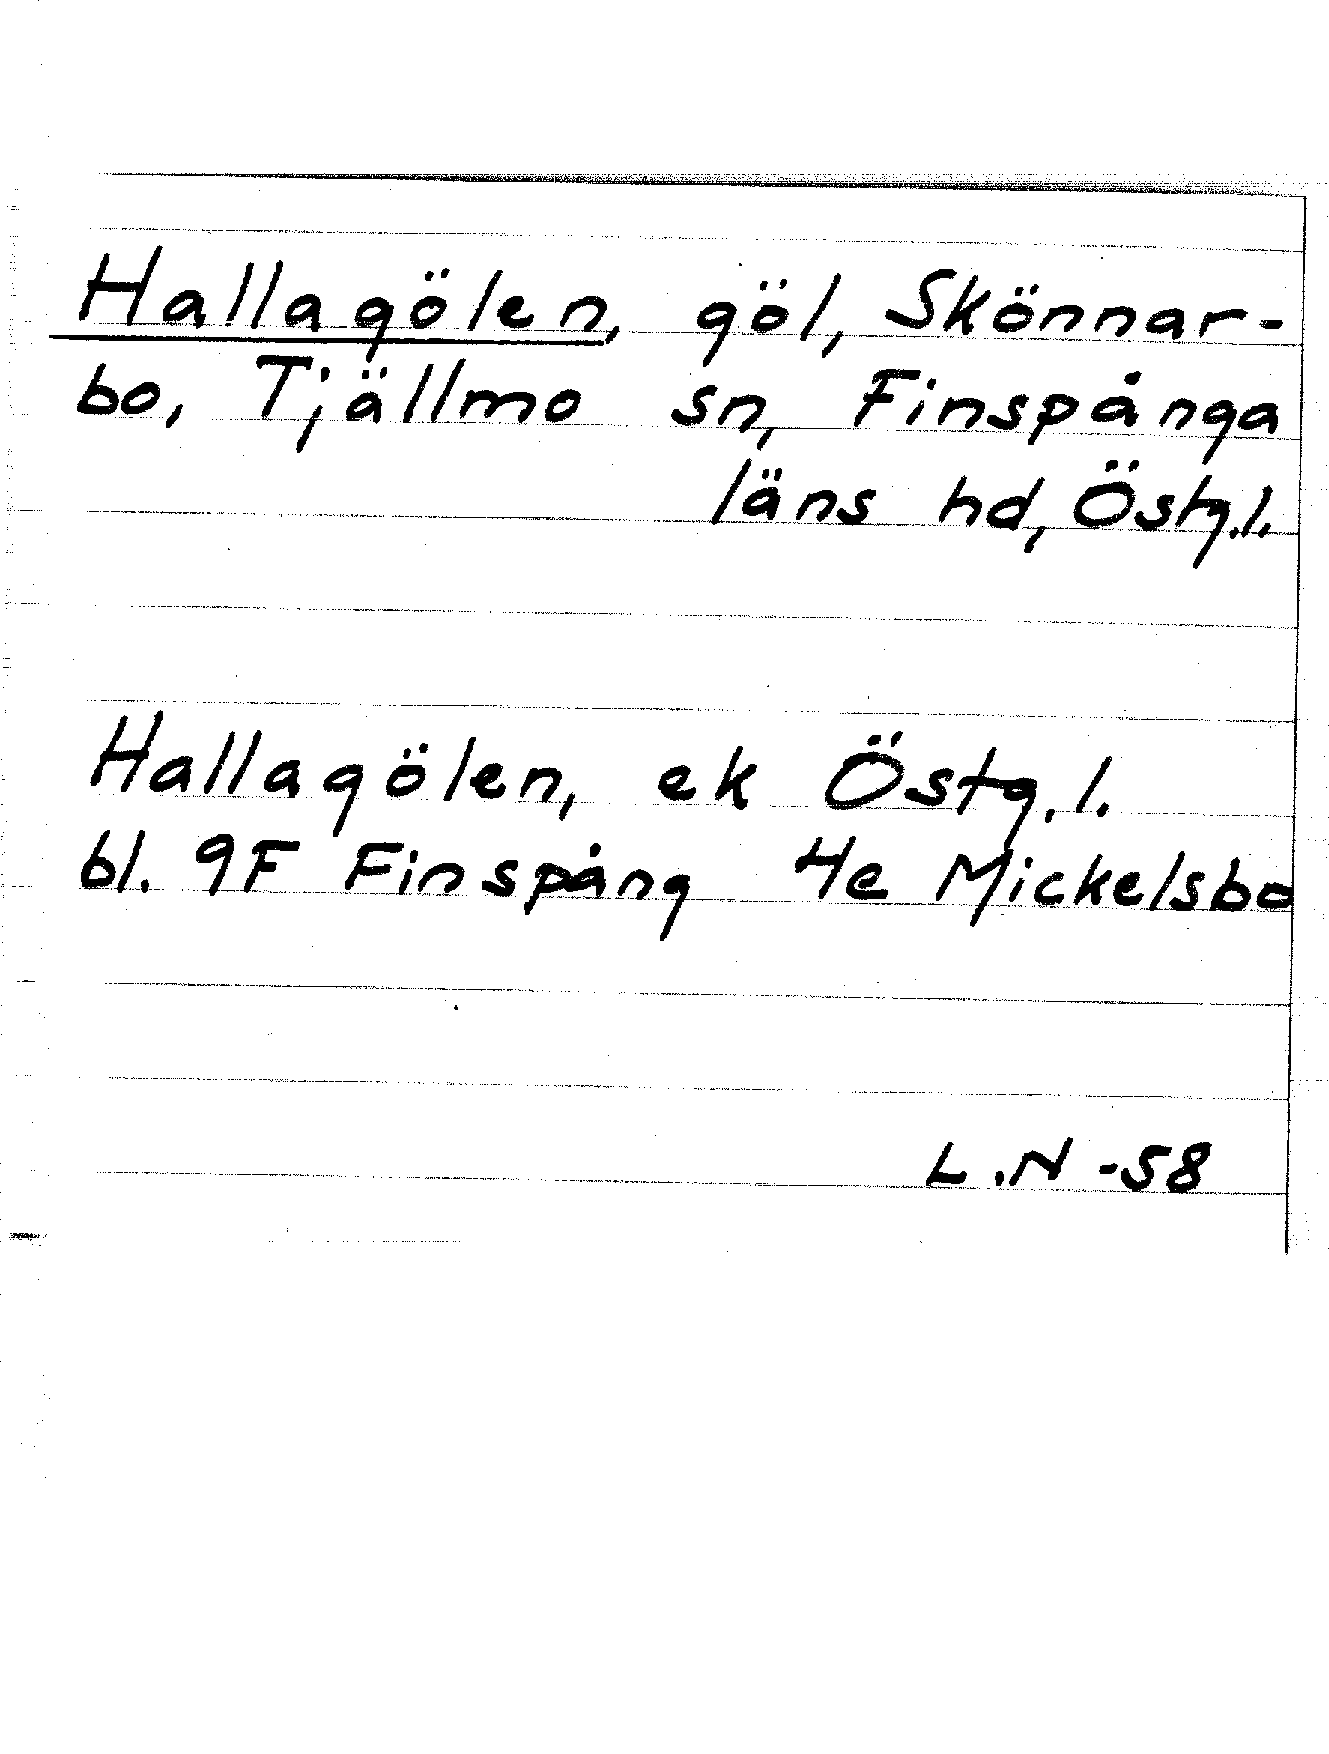 Hallagölen, göl, Skönnar-
bo, Tjällmo sn, Finspånga
läns hd, Östg.l.
Hallagölen, ek Östg.l.
bl. 9F Finspång 4e Mickelsbo
L.N -58